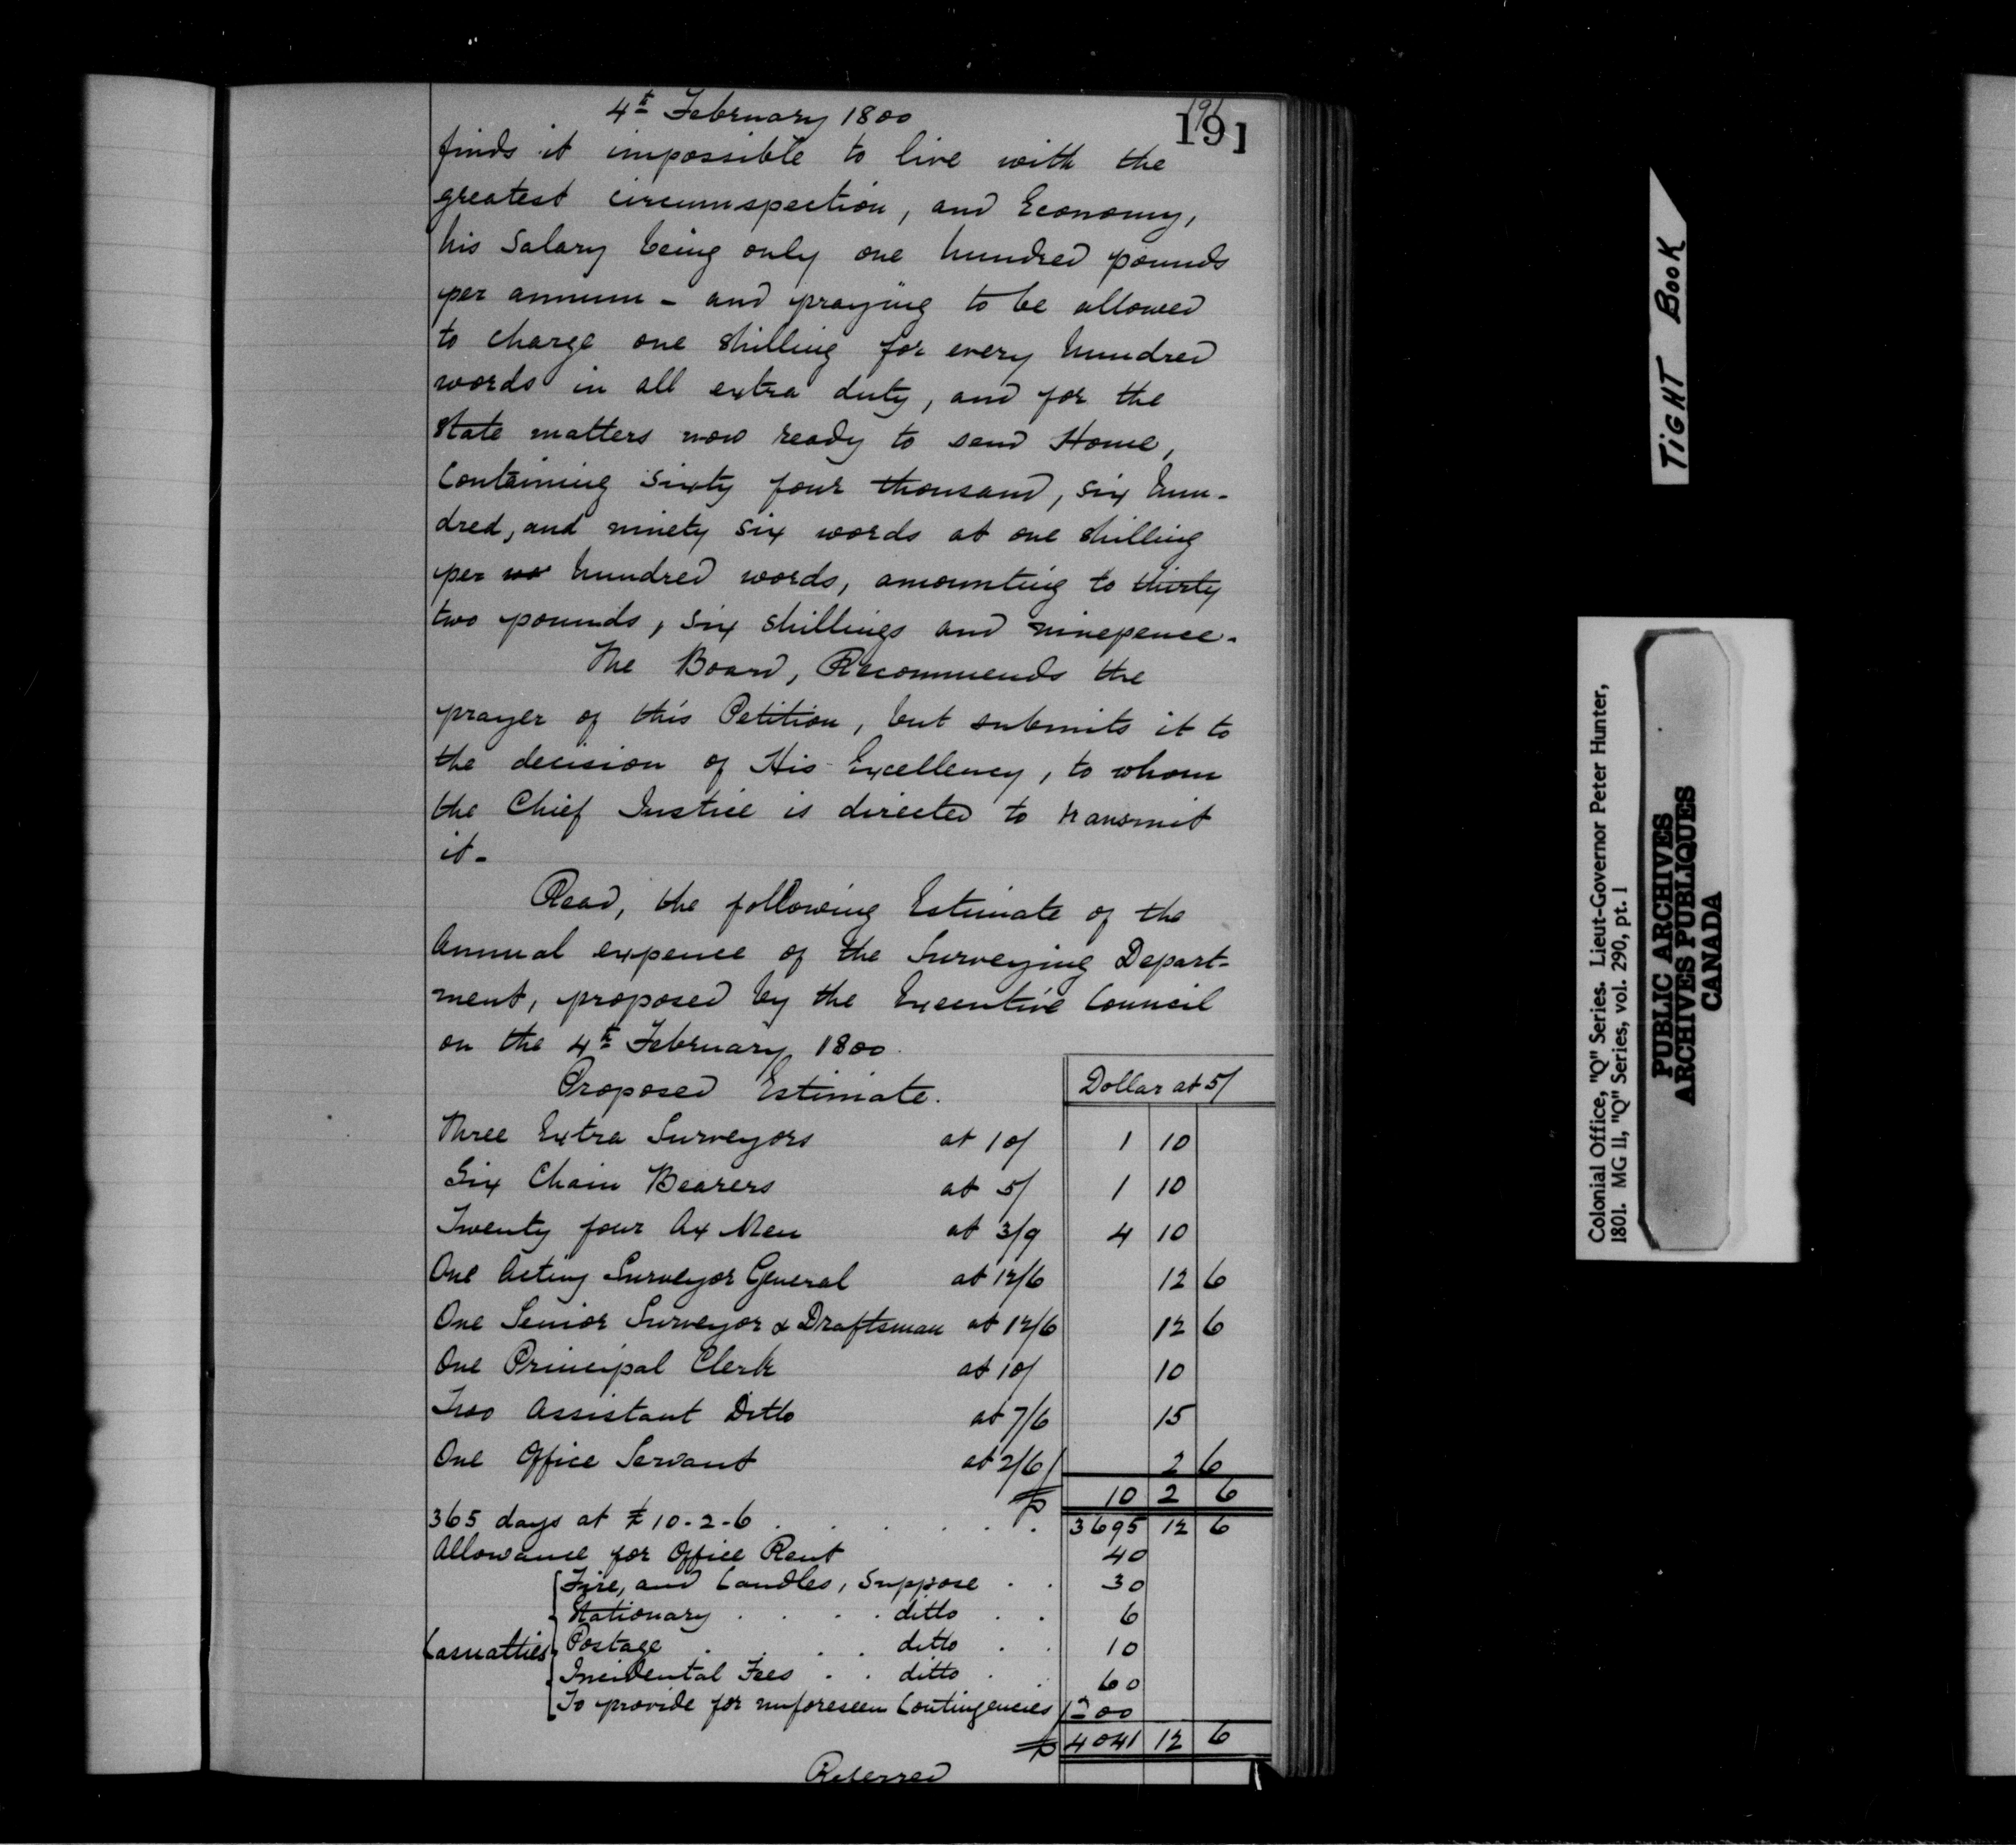 4th February 1800
191
191
finds it impossible to live with the
greatest circumspection, and Economy,
his Salary being only one hundred pounds
per annum - and praying to be allowed
to charge one shilling for every hundred
words in all extra duty, and for the
State matters now ready to send Home,
Containing sixty four thousand, six hun-
dred, and ninety six words at one shilling
per wo hundred words, amounting to thirty
two pounds, six shillings and ninepence.
The Board, Recommends the
prayer of this Petition, but submits it to
the decision of His Excellency, to whom
the Chief Justice is directed to transmit
it-
Read, the following Estimate of the
Annual expence of the Surveying Depart-
ment, proposed by the Executive Council
on the 4th February 1800.
Proposed Estimate. Dollar at 5/
Three Extra Surveyors at 10/ 1 10
Six Chain Bearers at 5/ 1 10
Twenty four Ax Men at 3/9 4 10
One Acting Surveyor General at 12/6 12 6
One Senior Surveyor & Draftsman at 12/6 12 6
One Principal Clerk at 10/ 10
Two Assistant Ditto at 7/6 15
One Office Servant at 2/6 2 6
£ 10 2 6
365 days at £10-2-6 . . . . . . 3695 12 6
Allowance for Office Rent 40
Fire, and Candles, Suppose . . 30
Stationary . . . . ditto . . 6
Casualties Postage . . . . ditto . . 10
Incidental Fees . . ditto . . 60
To provide for unforeseen Contingencies 200
£ 4041 12 6
Referred
TIGHT BOOK
Colonial Office, "Q" Series. Lieut-Governor Peter Hunter,
1801. MG 11, "Q" Series, vol. 290, pt. 1
PUBLIC ARCHIVES
ARCHIVES PUBLIQUES
CANADA